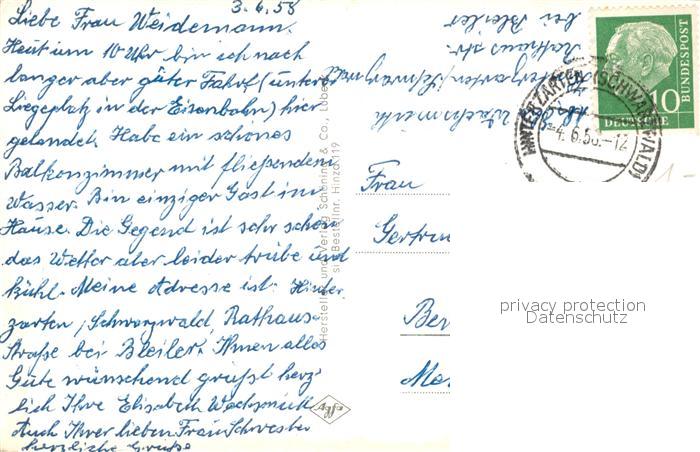 3.6.58
Liebe Frau Weidemann.
Heut um 10 Uhr bin ich nach
langer aber guter Fahrt (unterer
Liegeplatz in der Eisenbahn) hier
gelandet. Habe ein schönes
Balkonzimmer mit fließendem
Wasser. Bin einziger Gast im
Hause. Die Gegend ist sehr schön
das Wetter aber leider trübe und
kühl. Meine Adresse ist: Hinter
zarten, Schwarzwald, Rathaus-
Straße bei Bleiler. Ihnen alles
Gute wünschend grüßt herz-
lich Ihre Elisabeth Wachsmuth
Auch Ihrer lieben Frau Schwester
herzliche Grüße
Wachsmuth
Hinterzarten/Schwarzwald
Rathaus str.
bei Bleiler
Herstellung und Verlag Schöning & Co., Lübeck
Bestellnr. Hinza 119
Agfa
DEUTSCHE BUNDESPOST
10
HINTERZARTEN (SCHWARZWALD)
-4.6.58.-12
Frau
Gertru
Ber
1-
privacy protection
Datenschutz